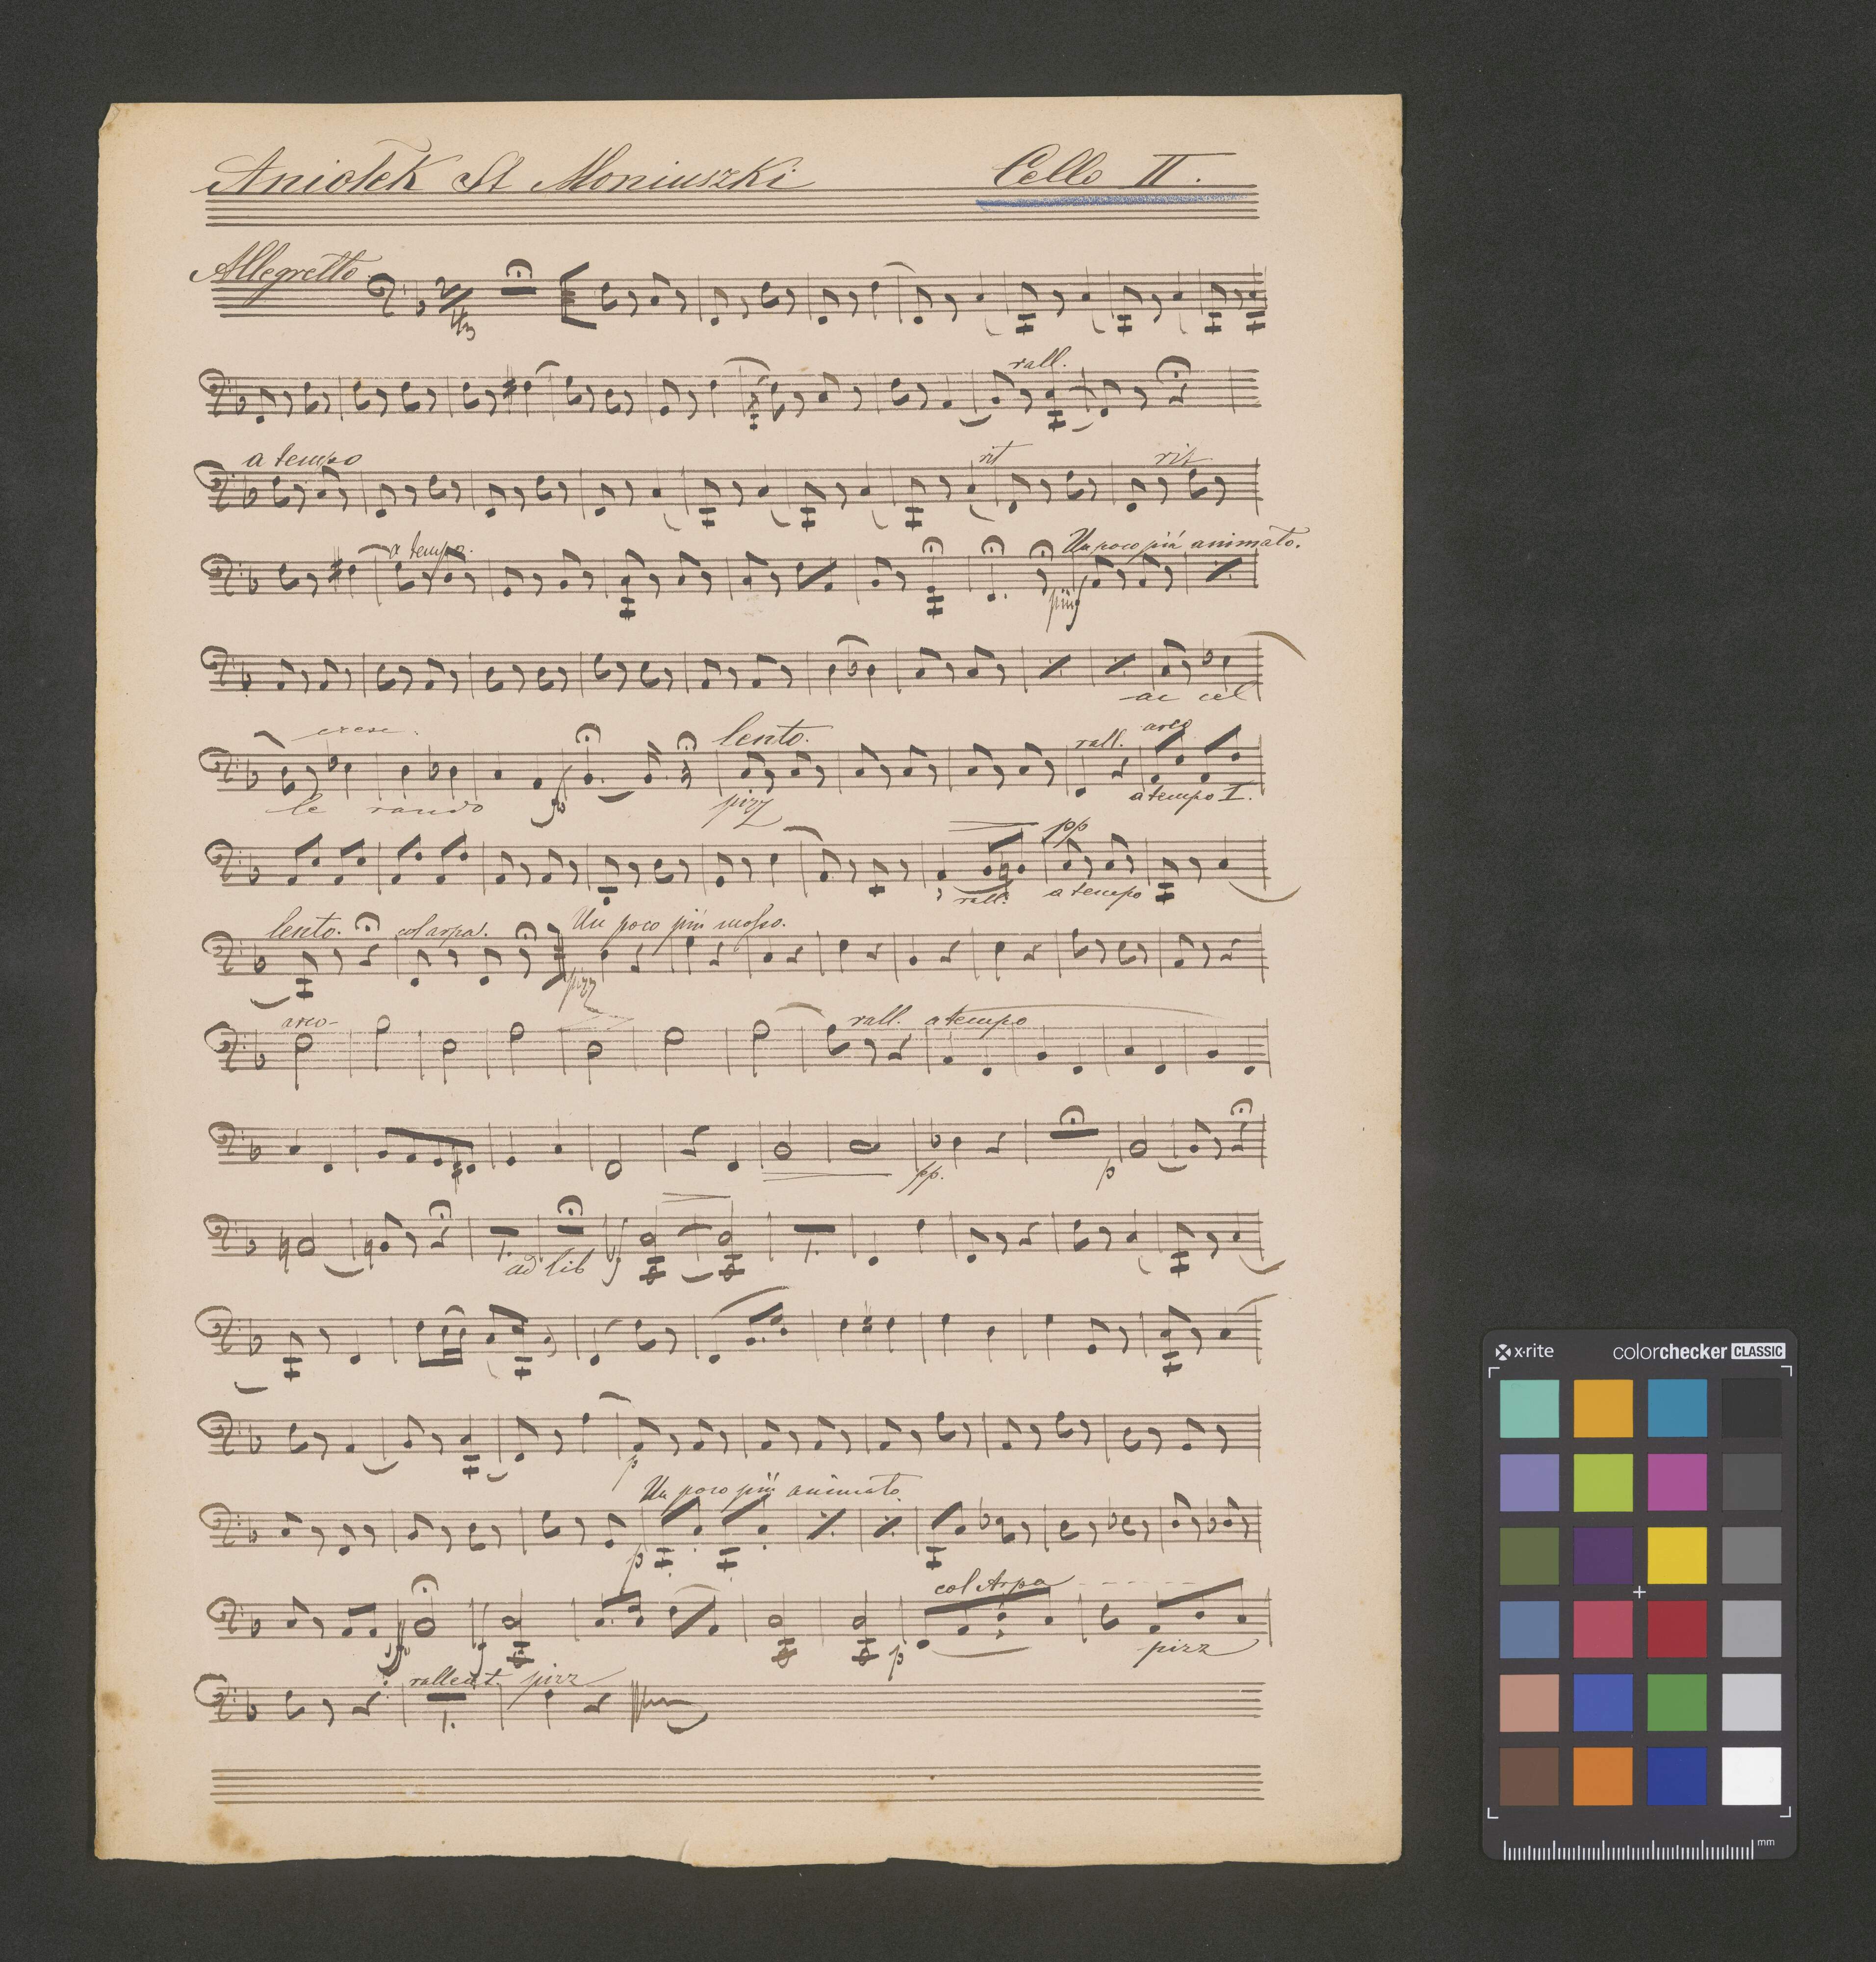 Aniołek St Moniuszki Cello II.
Allegretto.
rall.
a tempo rit rit.
a tempo. Un poco più animato.
ac cel
cresc. lento. rall. arco
le rando pizz a tempo I.
pp
rall. a tempo
lento. col arpa. Un poco più mosso.
pizz
arco rall. a tempo
pp. p
1. 1.
ad lib
p
Un poco più animato.
p
col Arpa
p pizz
rallent. pizz
1.
x·rite colorchecker CLASSIC
mm